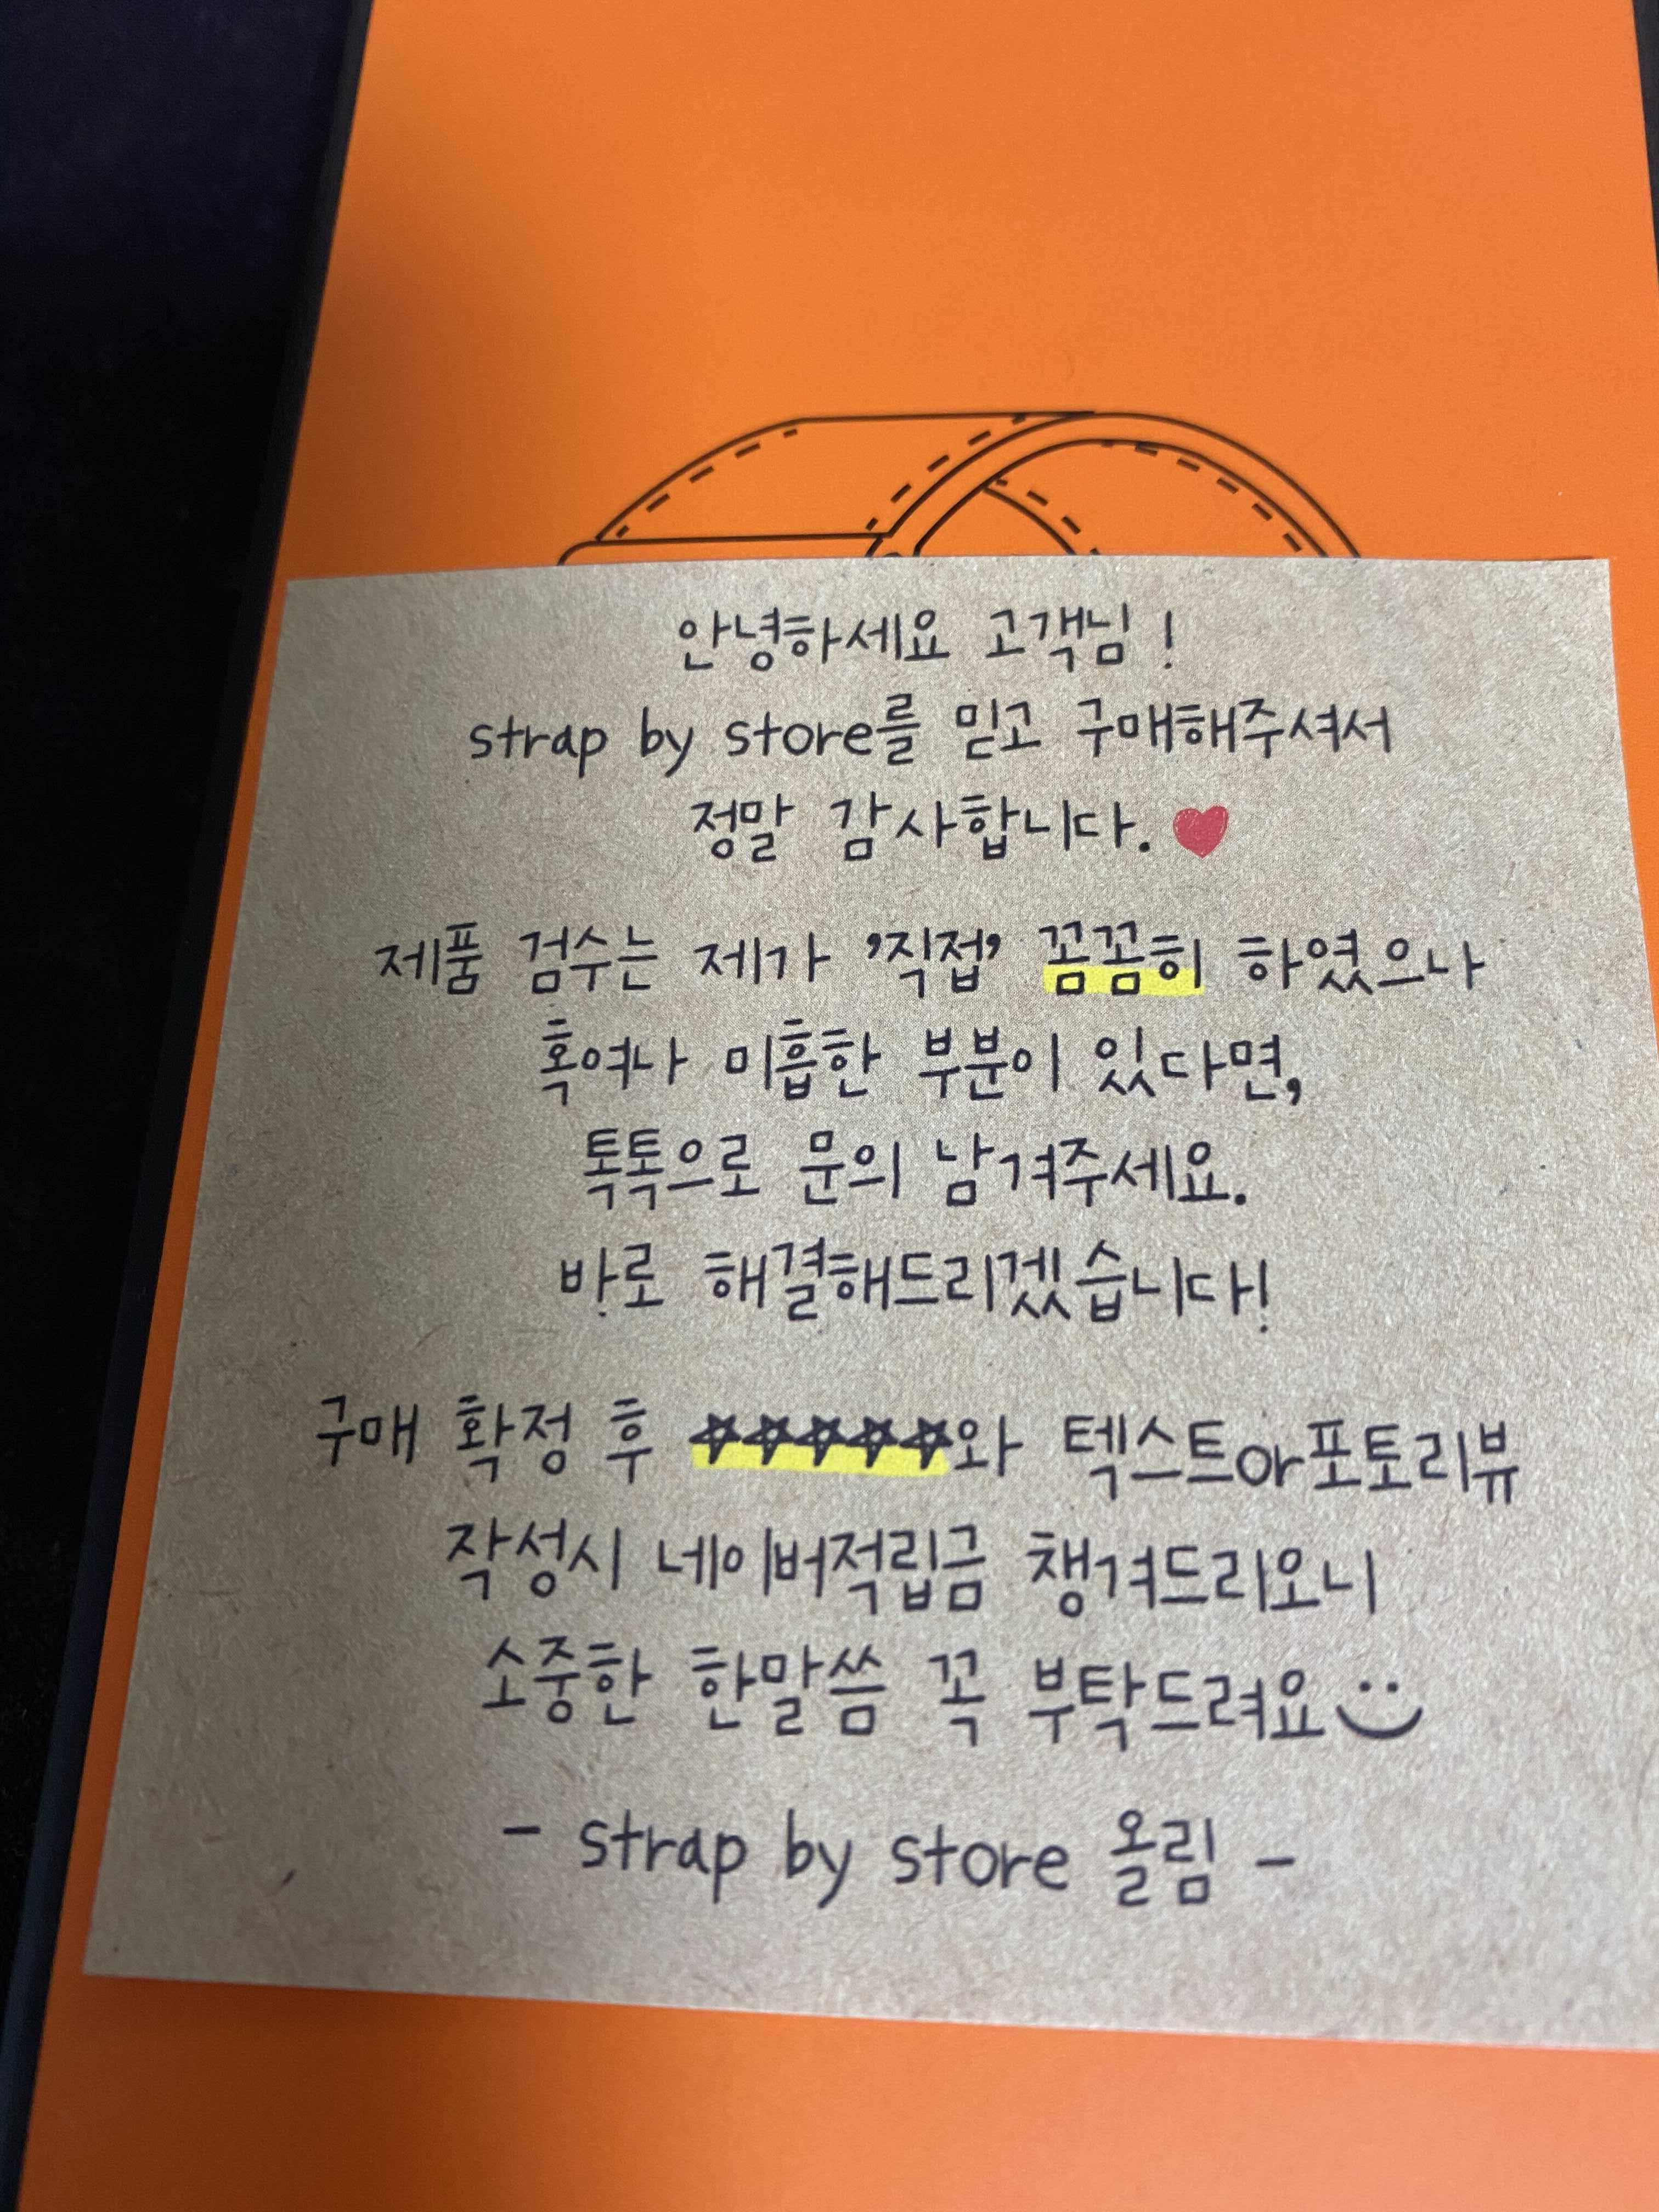 안녕하세요 고객님 !
strap by store를 믿고 구매해주셔서
정말 감사합니다. ♥
제품 검수는 제가 '직접' 꼼꼼히 하였으나
혹여나 미흡한 부분이 있다면,
톡톡으로 문의 남겨주세요.
바로 해결해드리겠습니다!
구매 확정 후 ☆☆☆☆☆와 텍스트or포토리뷰
작성시 네이버적립금 챙겨드리오니
소중한 한말씀 꼭 부탁드려요
- strap by store 올림 -